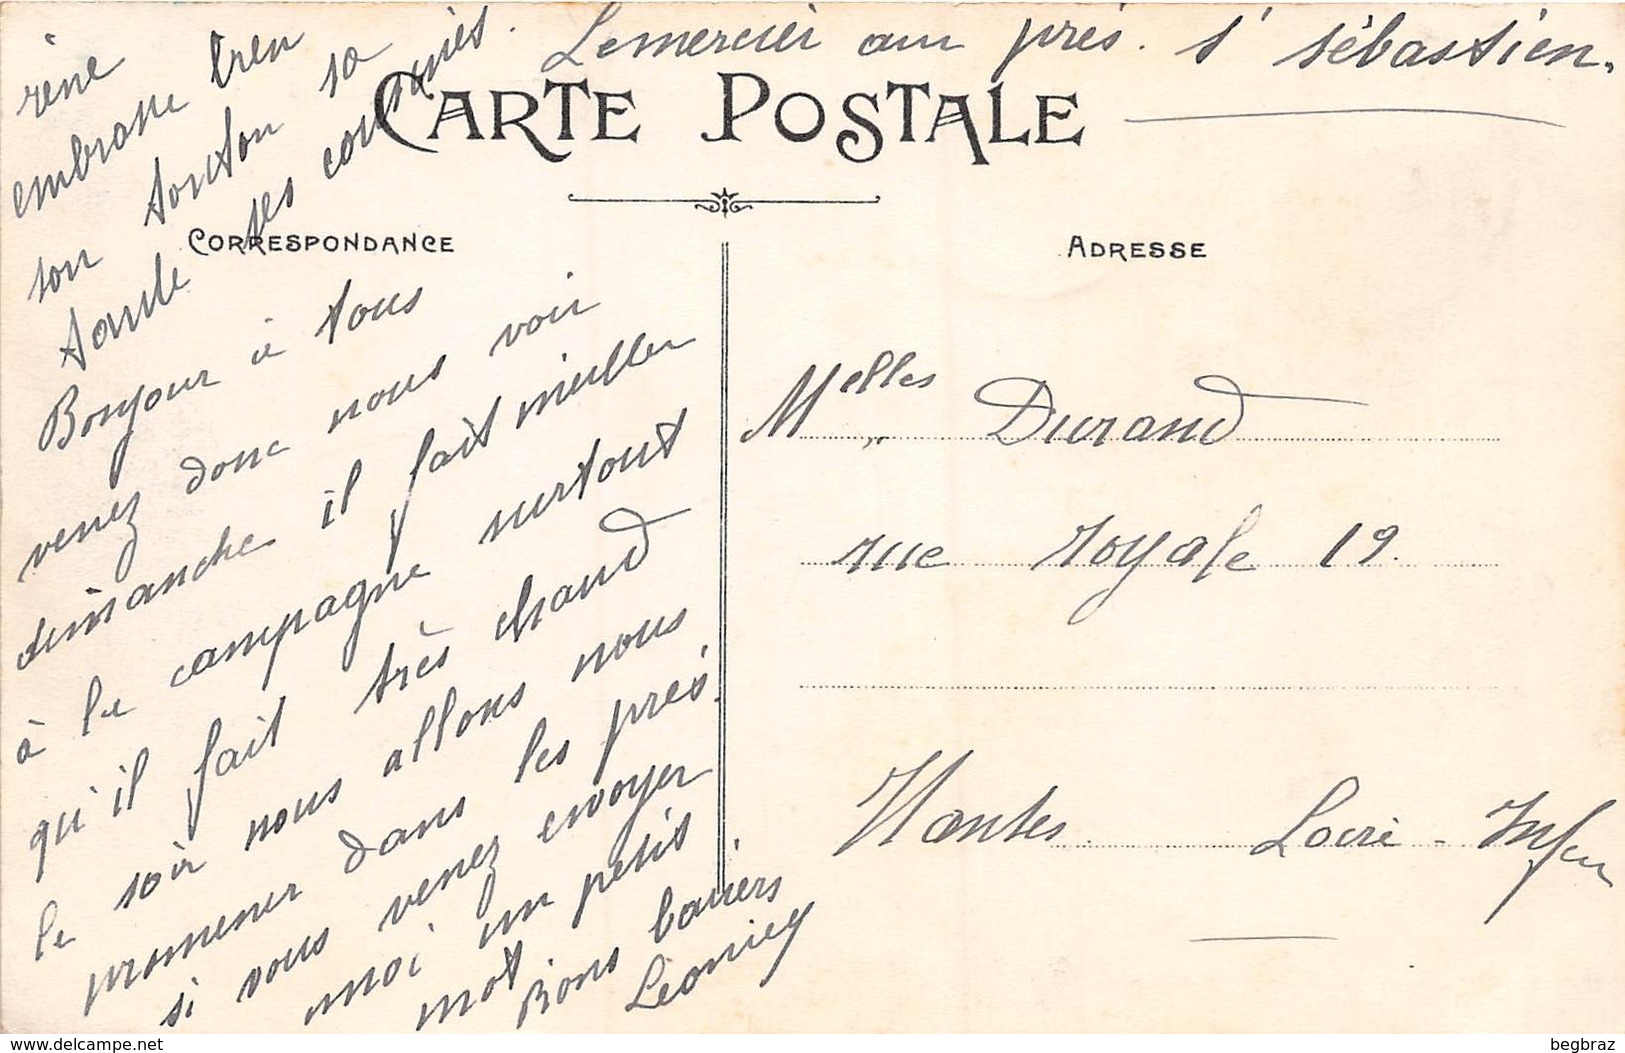 rène
embrasse bien
son tonton sa
tante ses cousines.
Lemercier au prés. St Sébastien.
CARTE POSTALE
CORRESPONDANCE
ADRESSE
Bonjour à tous
venez donc nous voir
dimanche il fait meiller
à la campagne surtout
qu'il fait très chaud
le soir nous allons nous
promener dans les prés.
si vous venez envoyer
moi un petit
mot.
Bons baisers
Melles Durand
rue royale 19.
Nantes Loire-Infer
www.delcampe.net
begbraz